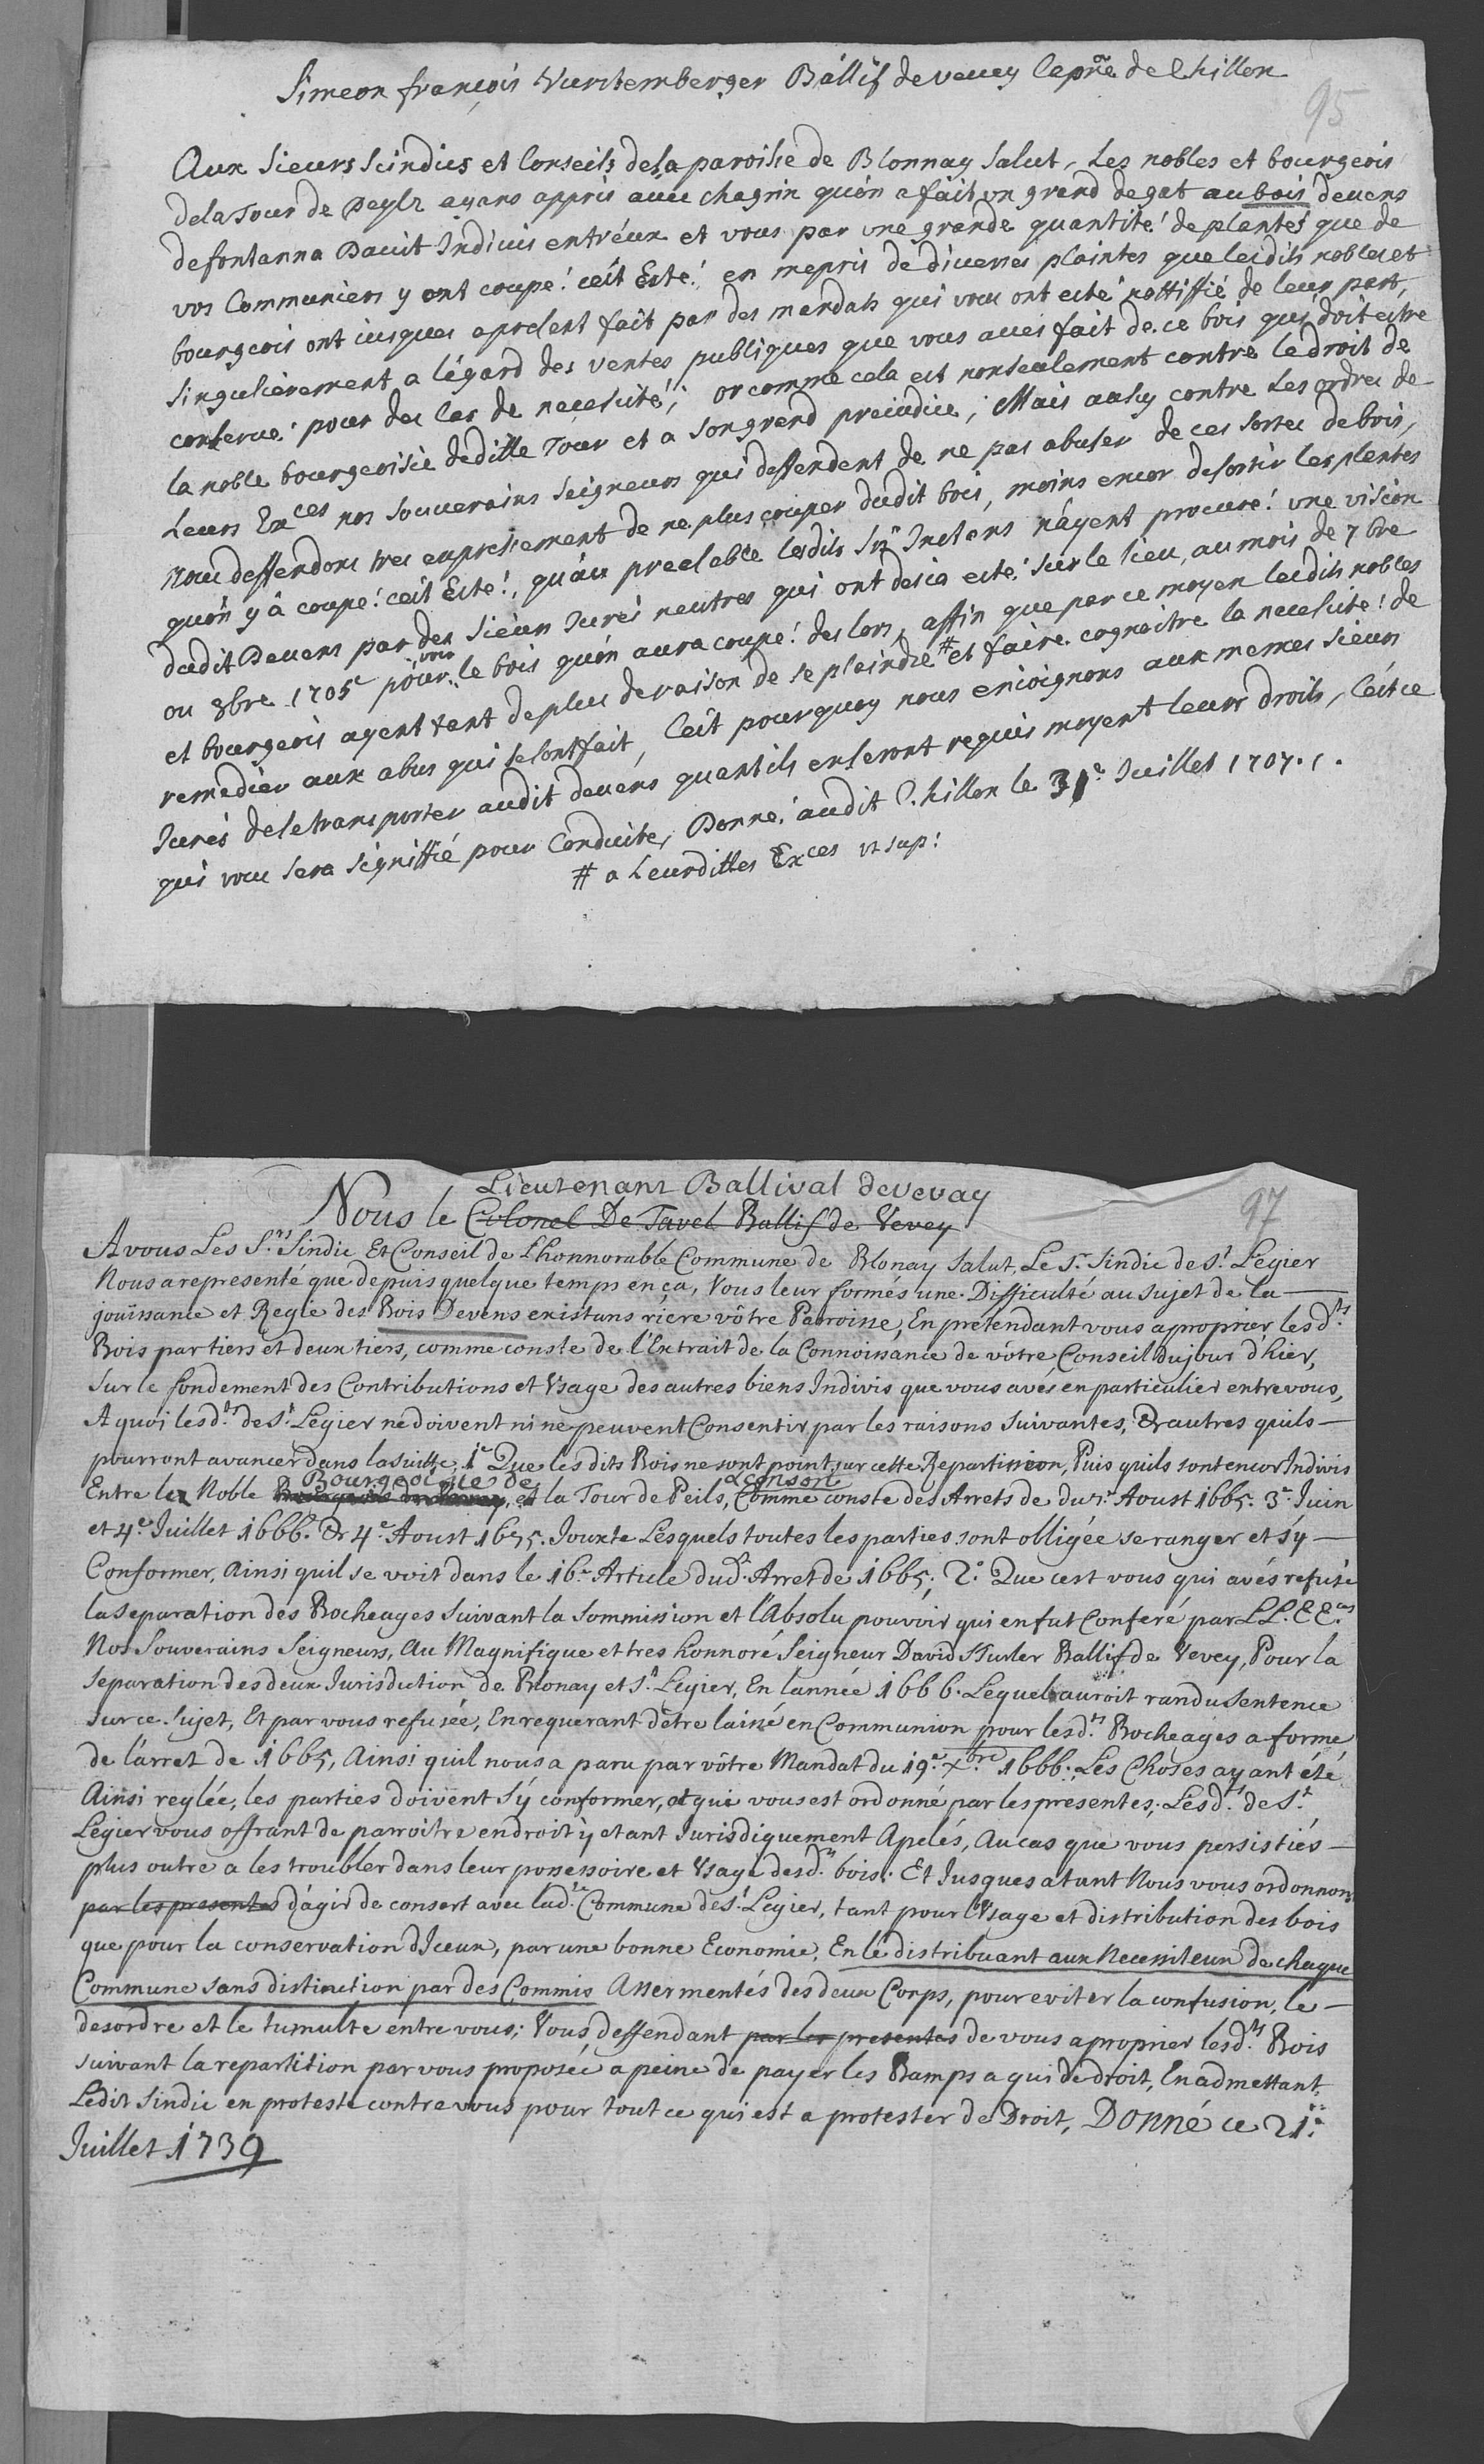 Simeon françois Wurstemberger Ballif de vevey Cap.ne de Chillon
95
Aux Sieurs Scindics et Conseils dela paroisse de Blonnay Salut, Les nobles et bourgeois
dela Tour de peylz ayans appris avec chagrin qu'on a fait un grand degat au bois devens
defontanna Davit Indivis entréux et vous par une grande quantité de plantes que de
vos Communiers y ont coupé cest Esté! en mepris de diverses plaintes que lesdits nobles et
bourgeois ont jusques apresent fait par des mandats qui vous ont esté nottiffié de leur part,
singulièrement a légard des ventes publiques que vous aves fait de ce bois qui doit estre
conservé pour des Cas de necessité; or comme cela est nonseulement contre le droit de
la noble bourgeoisie de ditte Tour et a son grand prejudice; Mais aussy contre Les ordres de
Leurs Exces nos souverains seigneurs qui deffendent de ne pas abuser de ces sortes de bois,
Nous deffendons tres expressement de ne plus couper dudit bois, moins encor de sortir les plantes
quon y a coupé cest Esté!, qu'au prealable lesdits Srs Instans n'ayent procuré une vision
dudit Devens par des Sieurs Jurés neutres qui ont desja esté sur le lieu, au mois de 7bre
ou 8bre 1705e pour voir le bois qu'on aura coupé deslors, affin que par ce moyen lesdits nobles
et bourgeois ayent tant deplus deraison de se plaindre # et faire cognoitre la necessité de
remedier aux abus qui se sont fait, C'est pourquoy nous enjoignons aux memes sieurs
Jurés dele transporter audit devens quant ils en seront requis moyent leurs droits, C'est ce
qui vous sera signiffié pour Conduite, Donné audit Chillon le 31e Juillet 1707.
# a Leurdittes Exces ut sup:
97
Lieutenant Ballival de Vevay
Nous le Colonel De Tavel Ballif de Vevey
A vous Les S.rs Sindic Et Conseil de Lhonnorable Commune de Blonay Salut, Le S.r Sindic de S.t Légier
Nous a representé que depuis quelque temps en ça, Vous leur formés une Difficulté au sujet de la
jouïssance et Regie des Bois Devens existans riere vôtre Paroisse, En prétendant vous aproprier lesd.ts
Bois par tiers et deux tiers, comme conste de l'Extrait de la Connoissance de vôtre Conseil du jour d'hier,
Sur le fondement des Contributions et Usage des autres biens Indivis que vous avés en particulier entre vous,
A quoi lesd.ts de S.t Legier ne doivent ni ne peuvent Consentir par les raisons suivantes, & autres quils
pourront avancer dans la suitte, 1.e Que les dits Bois ne sont point sur cette Repartition, Puis quils sont encor Indivis
Entre les Noble Bourgeoisie de la Tour de Peils, Comme conste des Arrets de du Aoust 1665. 3.e Juin
et 4.e Juillet 1666. & 4.e Aoust 1675. Jouxte Lesquels toutes les parties sont olligée se ranger et s'y
Conformer, Ainsi quil se voit dans le 16.e Article dud.t Arret de 1665; 2.o Que cest vous qui avés refusé
la Separation des Bocheages suivant la Sommission et l'Absolu pouvoir qui en fut Conferé par LL. EE.ces
Nos Souverains Seigneurs, Au Magnifique et tres honnoré Seigneur David Hurler Ballif de Vevey, Pour la
separation des deux Jurisdiction de Blonay et S.t Legier, En lannée 1666. Lequel auroit randu sentence
sur ce sujet, Et par vous refusée, En requerant detre laissé en Communion pour lesd.ts Bocheages a forme
de l'arret de 1665, Ainsi quil nous a paru par vôtre Mandat du 19.e Xbre 1666. Les Choses ayant été
Ainsi reglée, les parties doivent s'y conformer, et qui vous est ordonné par les presentes; Lesd.ts de S.t
Legier vous offrant de parroitre en droit y etant Jurisdiquement Apelés, Au cas que vous persistiés
plus outre a les troubler dans leur possessoire et Usage desd.ts bois. Et Jusques atant Nous vous ordonnons
par les presentes d'agir de consert avec lad.te Commune de S.t Legier, tant pour l'Usage et distribution des bois
que pour la conservation d'Iceux, par une bonne Economie, En le distribuant aux Necessiteux de chaque
Commune sans distinction par des Commis Assermentés des deux Corps, pour eviter la confusion, le
desordre et le tumulte entre vous; Vous deffendant par les presentes de vous aproprier lesd.ts Bois
suivant la repartition par vous proposée a peine de payer les Bamps a qui de droit, En admettant
Ledit Sindic en proteste contre vous pour tout ce qui est a protester de Droit, Donné ce 21.e
Juillet 1739